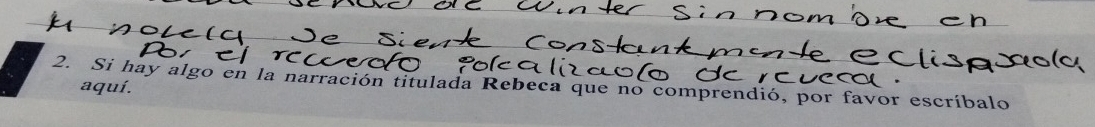 de Winter sin nombre en
la novela se siente constantemente eclispsada
por el recuerdo de reveca.
2. Si hay algo en la narración titulada Rebeca que no comprendió, por favor escríbalo
aquí.